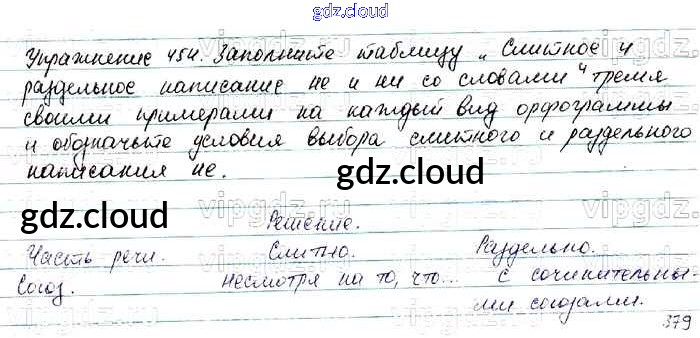 gdz.cloud
Упражнение 454. Заполните таблицу „Слитное и
раздельное написание не и ни со словами“ тремя
своими примерами на каждый вид орфограммы
и обозначьте условия выбора слитного и раздельного
написания не.
gdz.cloud
gdz.cloud
Решение.
Часть речи. Слитно. Раздельно.
Союз. Несмотря на то, что... с сочинительны-
ми союзами.
379